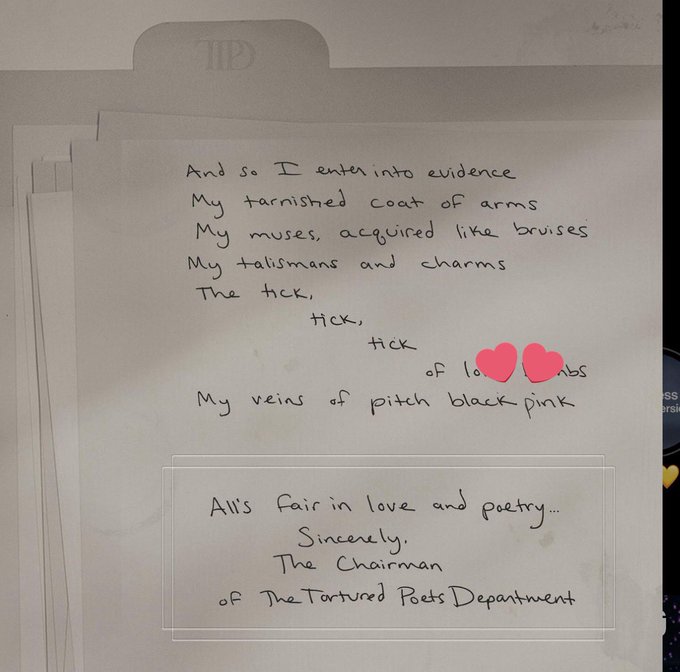 And so I enter into evidence
My tarnished coat of arms
My muses, acquired like bruises
My talismans and charms
The tick,
tick,
tick
of
My veins of pitch black pink
All's fair in love and poetry...
Sincerely,
The Chairman
of The Tortured Poets Department